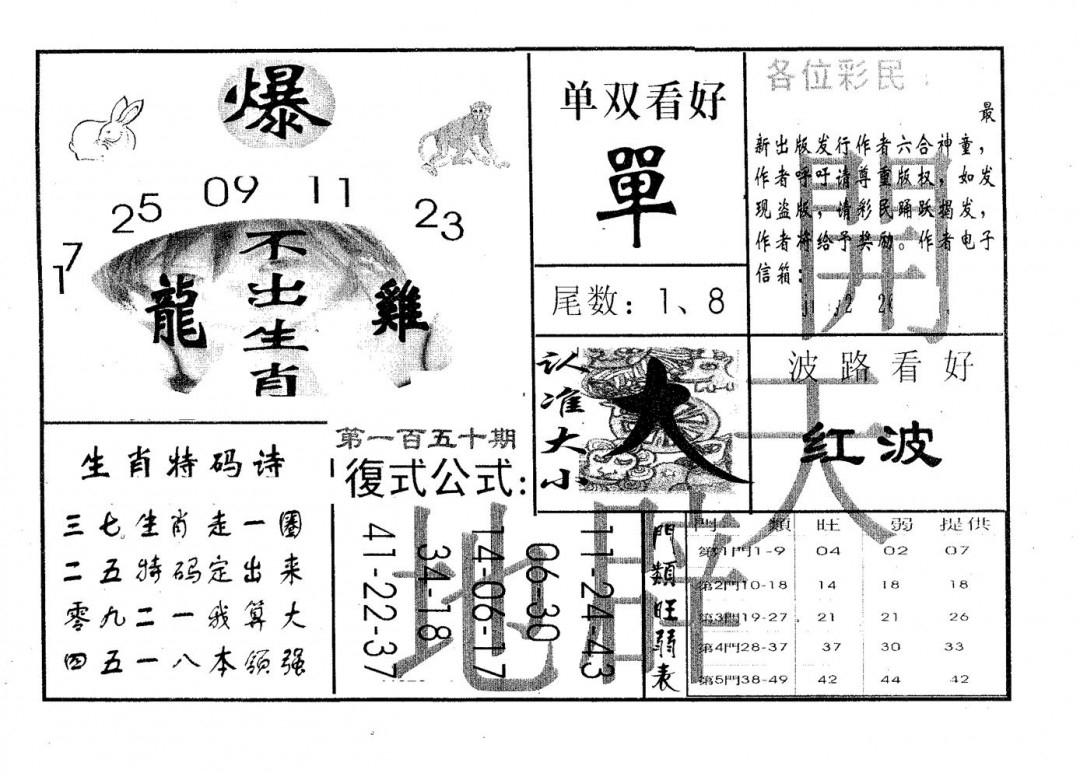 爆
17 25 09 11 23
不出生肖
龍
雞
生肖特码诗
三七生肖走一圈
二五特码定出来
零九二一我算大
四五一八本领强
第一百五十期
復式公式:
41-22-37
34-18
14-06-17
06-30
11-24-43
单双看好
單
尾数：1、8
认准大小
大
各位彩民：
最
新出版发行作者六合神童，
作者呼吁请尊重版权，如发
现盗版，请彩民踊跃揭发，
作者将给予奖励。作者电子
信箱：
波路看好
红波
開
天
地
門類旺弱表
門類 旺 弱 提供
第1門1-9 04 02 07
第2門10-18 14 18 18
第3門19-27 21 21 26
第4門28-37 37 30 33
第5門38-49 42 44 42